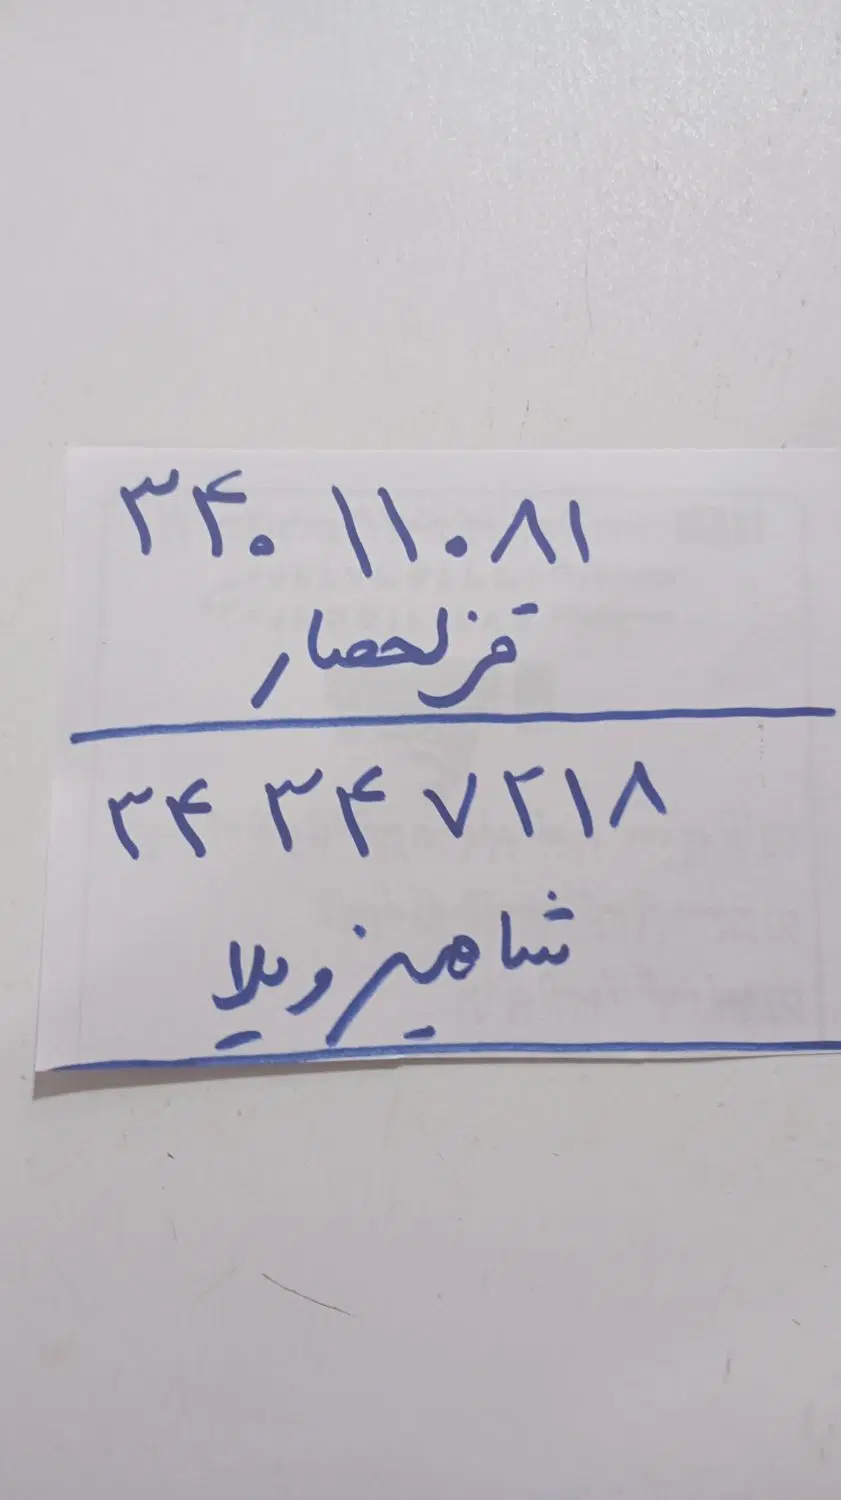 ۳۴۰ ۱۱۰۸۱
قزلحصار
۳۴ ۳۴ ۷۲۱۸
شاهین ویلا